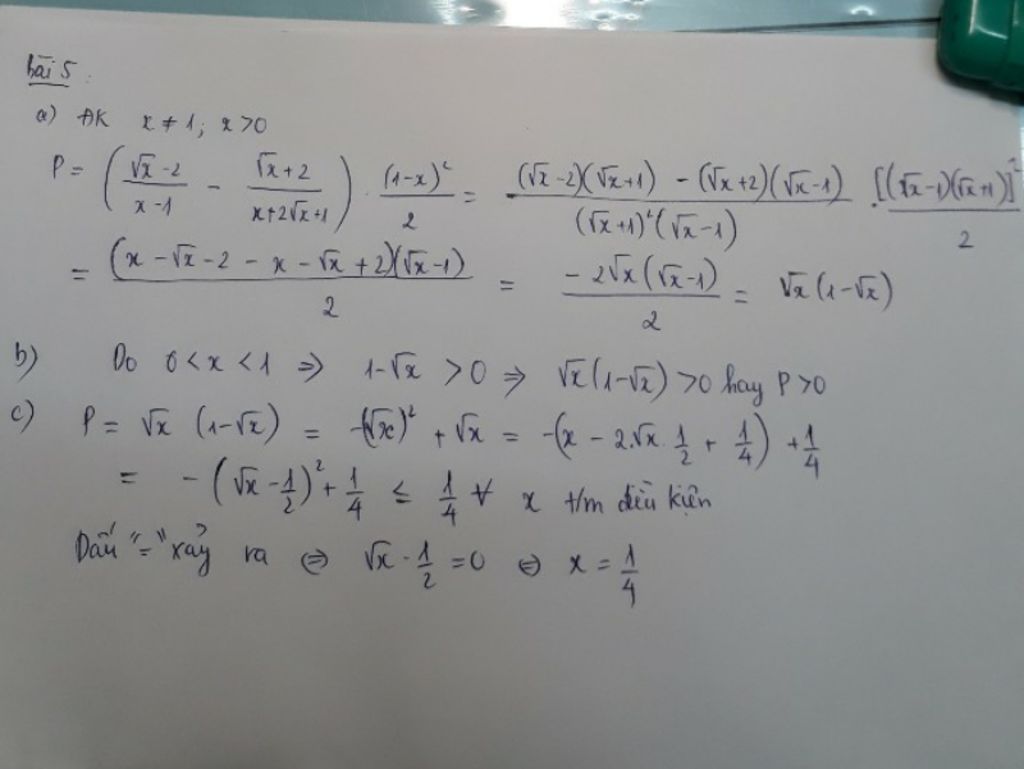 bài 5 :
a) ĐK x ≠ 1; x > 0
P = ( (√x - 2)/(x - 1) - (√x + 2)/(x + 2√x + 1) ) . (1 - x)²/2 = ((√x - 2)(√x + 1) - (√x + 2)(√x - 1))/((√x + 1)²(√x - 1)) . [(√x - 1)(√x + 1)]²/2
= (x - √x - 2 - x - √x + 2)(√x - 1)/2 = -2√x(√x - 1)/2 = √x(1 - √x)
b) Do 0 < x < 1 ⇒ 1 - √x > 0 ⇒ √x(1 - √x) > 0 hay P > 0
c) P = √x (1 - √x) = -(√x)² + √x = -(x - 2.√x.1/2 + 1/4) + 1/4
= -(√x - 1/2)² + 1/4 ≤ 1/4 ∀ x t/m điều kiện
Dấu "=" xảy ra ⇔ √x - 1/2 = 0 ⇔ x = 1/4